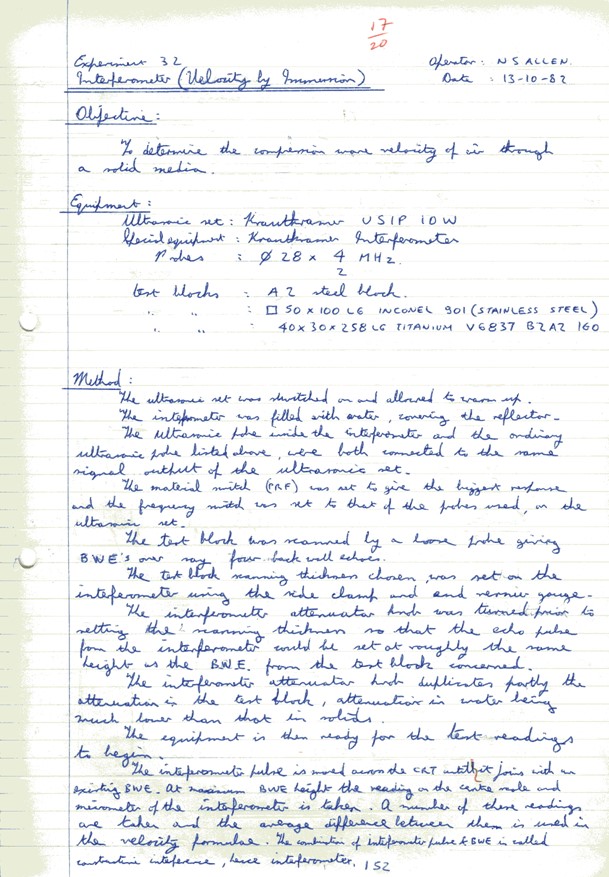 17
20
Experiment 32
Operator : N S ALLEN.
Interferometer (Velocity by Immersion)
Date : 13-10-82
Objective :
To determine the compression wave velocity of in through
a solid media.
Equipment :
Ultrasonic set : Krautkramer USIP 10W
Special equipment : Krautkramer Interferometer
Probes : Ø 28 x 4 MHz.
2
test blocks : A2 steel block.
" " : □ 50 x 100 LG INCONEL 901 (STAINLESS STEEL)
" " : 40 x 30 x 258 LG TITANIUM V6837 B2A2 160
Method :
The ultrasonic set was switched on and allowed to warm up.
The interferometer was filled with water, covering the reflector.
The ultrasonic probe inside the interferometer and the ordinary
ultrasonic probe listed above, were both connected to the same
signal output of the ultrasonic set.
The material switch (PRF) was set to give the biggest response
and the frequency switch was set to that of the probes used, on the
ultrasonic set.
The test block was scanned by a loose probe giving
BWE's over say four back wall echoes.
The test block scanning thickness chosen was set on the
interferometer using the side clamp and end vernier gauge.
The interferometer attenuator knob was turned prior to
setting the scanning thickness so that the echo pulse
from the interferometer could be set at roughly the same
height as the B.W.E. from the test block concerned.
The interferometer attenuator knob duplicates partly the
attenuation in the test block, attenuation in water being
much lower than that in solids.
The equipment is then ready for the test readings
to begin.
The interferometer pulse is moved across the CRT until it joins with an
existing BWE. At maximum BWE height the reading on the centre scale and
micrometer of the interferometer is taken. A number of these readings
are taken and the average difference between them is used in
the velocity formulae. The combination of interferometer pulse & BWE is called
constructive interference, hence interferometer.
152